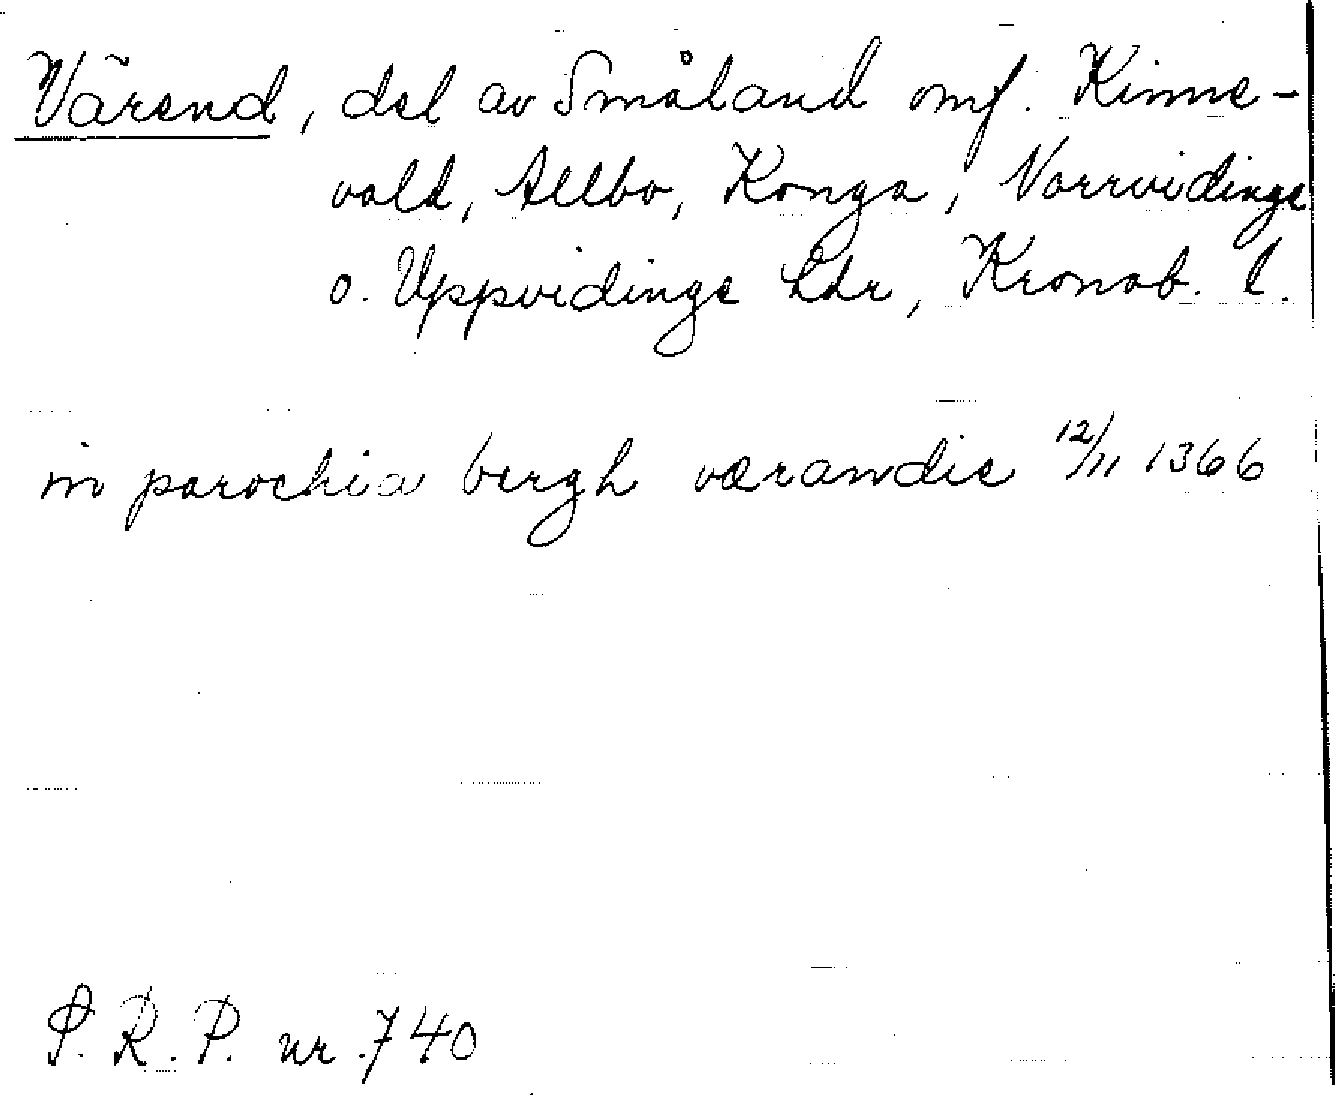 Värend, del av Småland omf. Kinne-
vald, Allbo, Konga, Norrvidinge
o. Uppvidinge hdr, Kronob. l.
in parochia bergh værandie 12/11 1366
S.R.P. nr.740